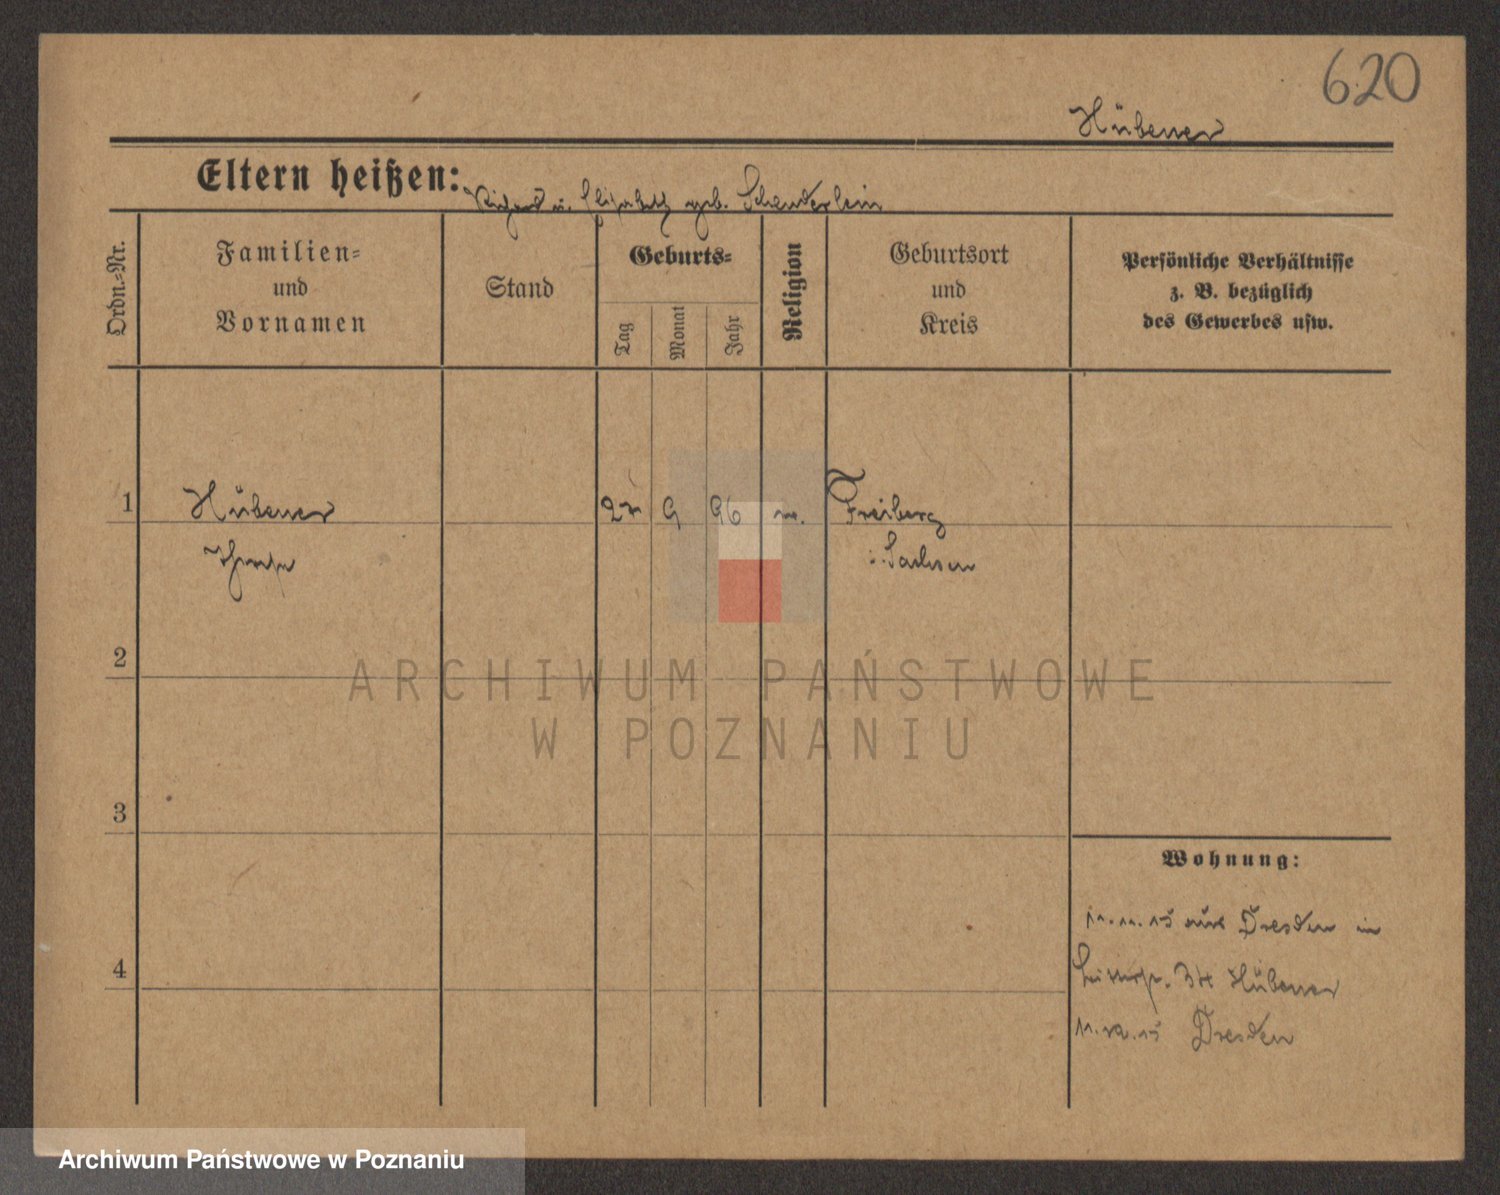 620
Hübener
Eltern heißen: Richard u. Elisabeth geb. Schenderlein
Ordn.-Nr.
Familien-
und
Vornamen
Stand
Geburts-
Tag
Monat
Jahr
Religion
Geburtsort
und
Kreis
Persönliche Verhältnisse
z. B. bezüglich
des Gewerbes usw.
1
Hübener
9
96
Freiberg
i. Sachsen
2
ARCHIWUM PAŃSTWOWE
W POZNANIU
3
Wohnung:
11.11.15 aus Dresden in
34 Hübener
4
Dresden
Archiwum Państwowe w Poznaniu